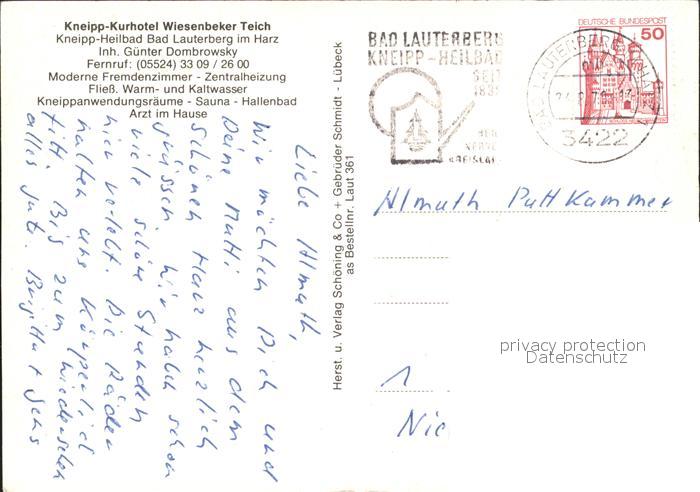 Kneipp-Kurhotel Wiesenbeker Teich
Kneipp-Heilbad Bad Lauterberg im Harz
Inh. Günter Dombrowsky
Fernruf: (05524) 33 09 / 26 00
Moderne Fremdenzimmer - Zentralheizung
Fließ. Warm- und Kaltwasser
Kneippanwendungsräume - Sauna - Hallenbad
Arzt im Hause
Liebe Almuth,
Wir möchten Dich und
Deine Mutti aus dem
schönen Harz herzlich
grüssen. Wir haben schon
viele schöne Stunden
hier verlebt. Die Bäder
halten uns körperlich
fitt. Bis zum Wiedersehen
alles Gute. Brigitte + Jens
Herst. u. Verlag Schöning & Co + Gebrüder Schmidt - Lübeck
as Bestellnr. Laut 361
BAD LAUTERBERG
KNEIPP-HEILBAD
SEIT
1839
HERZ
NERVEN
KREISLAUF
DEUTSCHE BUNDESPOST
50
BAD LAUTERBERG
3422
Almuth Puttkammer
1
Nie
privacy protection
Datenschutz